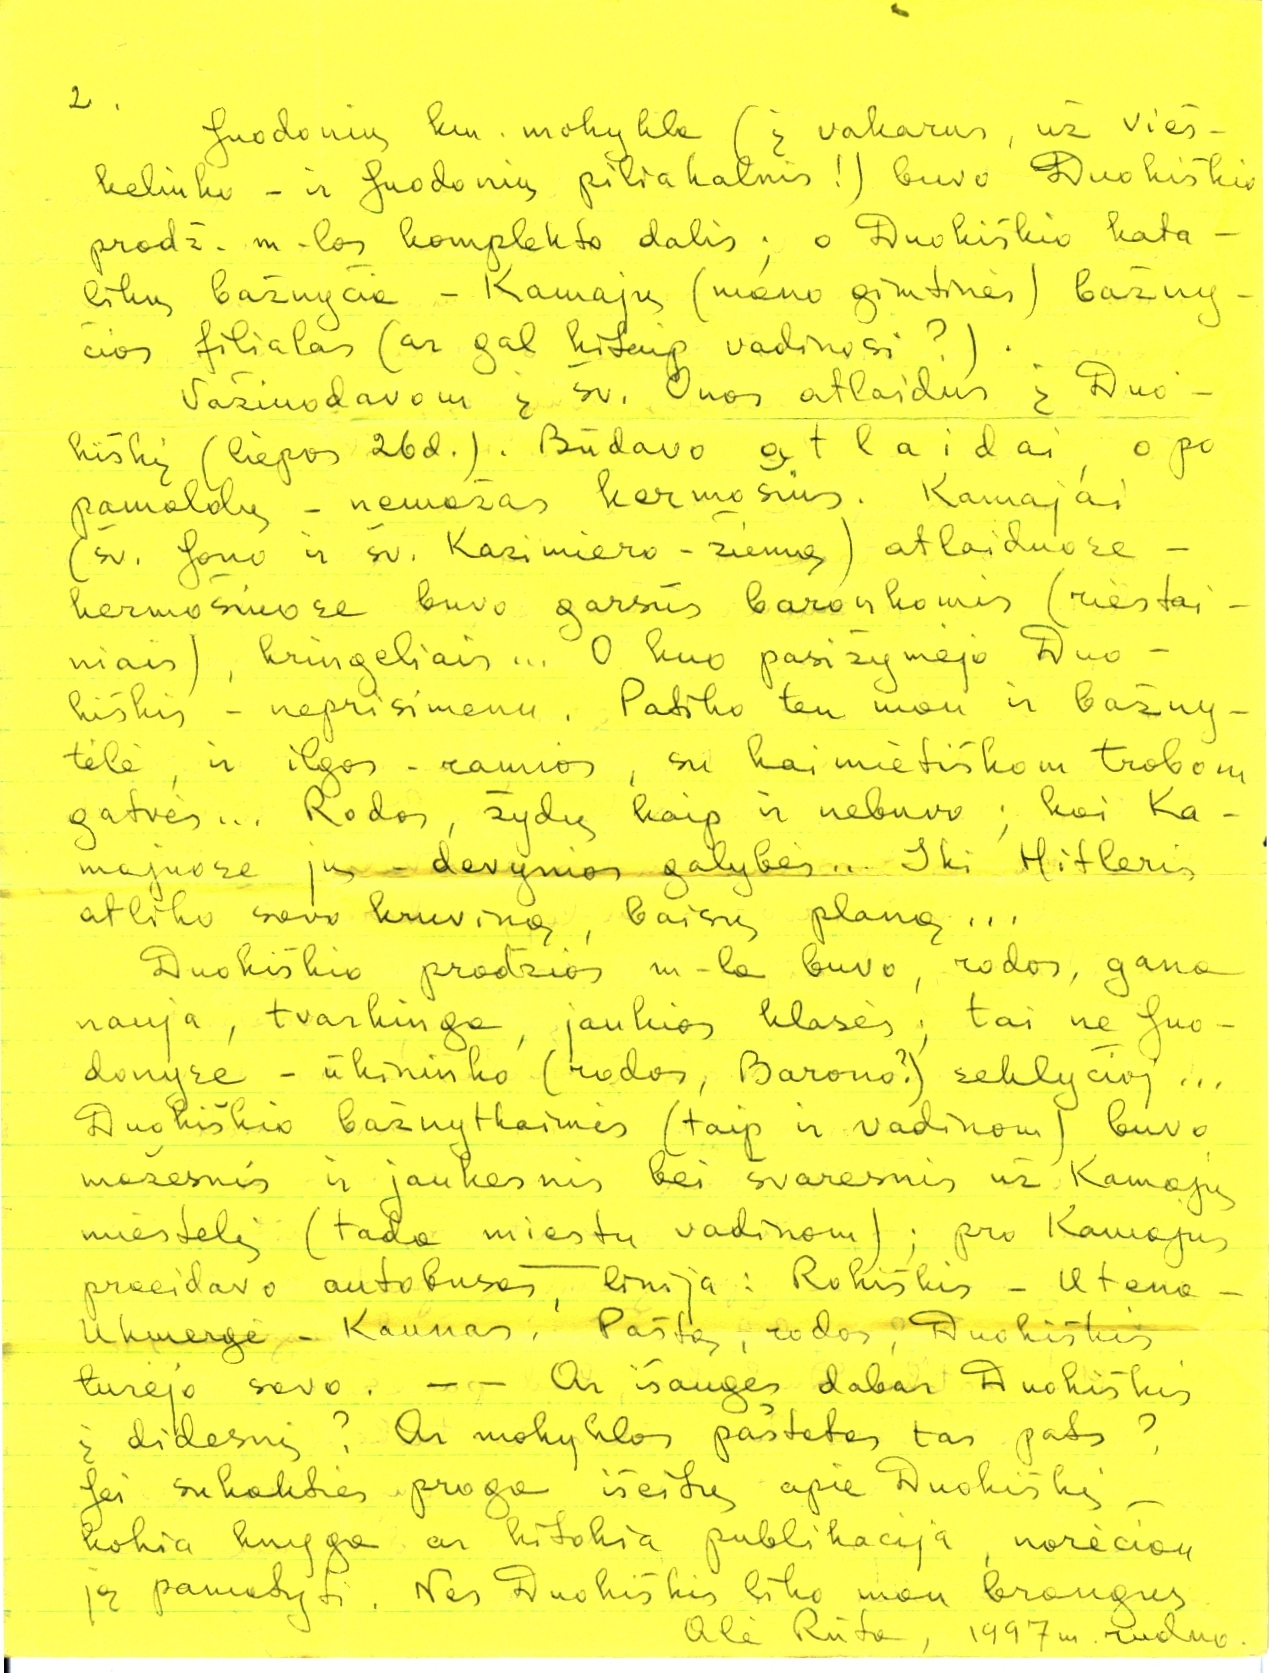 2.
Juodonių km. mokykla (į vakarus, už vieš-
kelinko - ir Juodonių piliakalnis!) buvo Duokiškio
pradž. m-los komplekto dalis; o Duokiškio kata-
likų bažnyčia - Kamajų (mano gimtinės) bažny-
čios filialas (ar gal kitaip vadinosi?).
Važiuodavom į šv. Onos atlaidus į Duo-
kiškį (liepos 26d.). Būdavo atlaidai, o po
pamaldų - nemažas kermošius. Kamajai
(šv. Jono ir šv. Kazimiero - žiemą) atlaiduose -
kermošiuose buvo garsūs baronkomis (riestai-
niais), kringeliais... O kuo pasižymėjo Duo-
kiškis - neprisimenu. Patiko ten man ir bažny-
tėlė, ir ilgos - ramios, su kaimietiškom trobom
gatvės... Rodos, žydų kaip ir nebuvo; kai Ka-
majuose jų - devynios galybės... Iki Hitleris
atliko savo kruviną, baisų planą...
Duokiškio pradžios m-la buvo, rodos, gana
nauja, tvarkinga, jaukios klasės; tai ne Juo-
donyse - ūkininko (rodos, Barono?) seklyčioj...
Duokiškio bažnytkaimis (taip ir vadinom) buvo
mažesnis ir jaukesnis bei švaresnis už Kamajų
miestelį (tada miestu vadinom); pro Kamajus
praeidavo autobusas, linija: Rokiškis - Utena -
Ukmergė - Kaunas. Paštą, rodos, Duokiškis
turėjo savo. — — Ar išaugęs dabar Duokiškis
į didesnį? Ar mokyklos paštatas tas pats?
Jei sukakties proga išeitų apie Duokiškį
kokia knyga ar kitokia publikacija, norėčiau
ją pamatyti. Nes Duokiškis liko man brangus
Alė Rūta, 1997 m. ruduo.